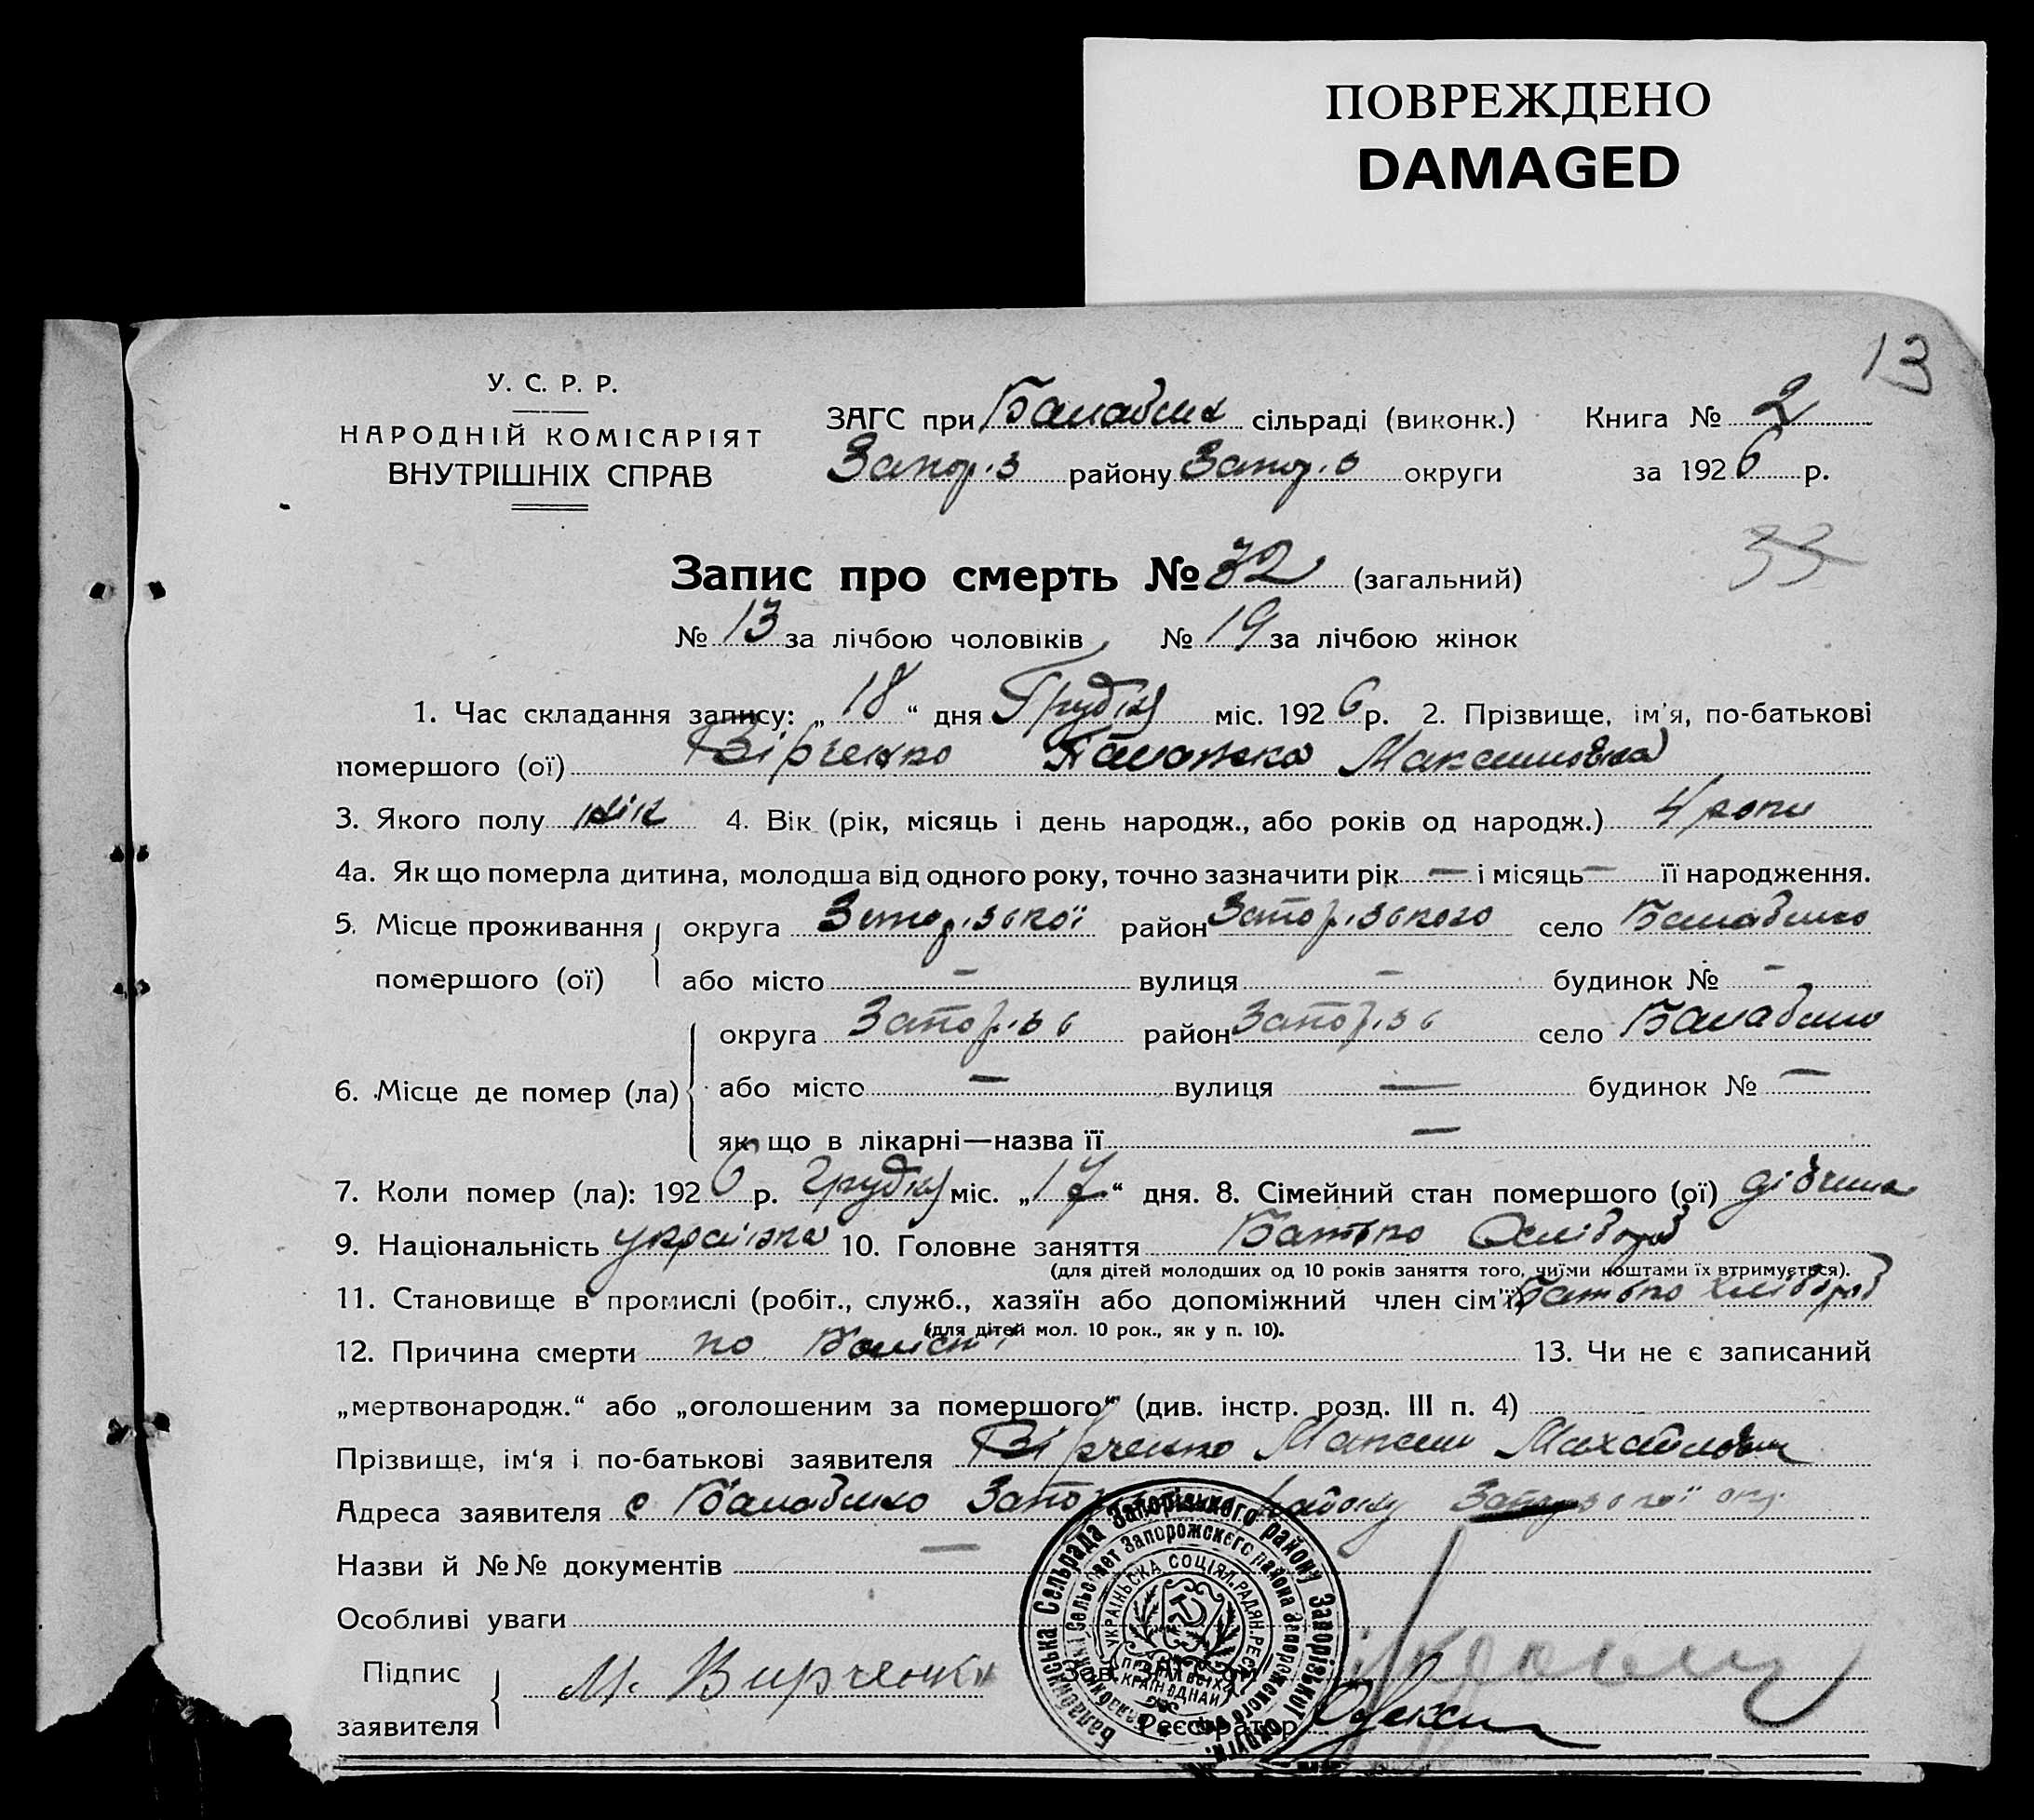 ПОВРЕЖДЕНО
DAMAGED
13
У. С. Р. Р.
НАРОДНІЙ КОМІСАРІЯТ
ВНУТРІШНІХ СПРАВ
ЗАГС при Балабинк сільраді (виконк.) Книга № 2
Запор.з району Запор.з округи за 1926 р.
33
Запис про смерть № 32 (загальний)
№ 13 за лічбою чоловіків № 19 за лічбою жінок
1. Час складання запису: „18“ дня Грудня міс. 1926 р. 2. Прізвище, ім’я, по-батькові
помершого (ої) Вірченко Палажка Максимовна
3. Якого полу жін 4. Вік (рік, місяць і день народж., або років од народж.) 4 роки
4а. Як що померла дитина, молодша від одного року, точно зазначити рік — і місяць — її народження.
5. Місце проживання округа Запорізької район Запорізького село Балабино
помершого (ої) або місто — вулиця — будинок № —
округа Запоріз район Запоріз село Балабино
6. Місце де помер (ла) або місто — вулиця — будинок № —
як що в лікарні—назва її —
7. Коли помер (ла): 1926 р. Грудня міс. „17“ дня. 8. Сімейний стан помершого (ої) дівчина
9. Національність українка 10. Головне заняття Батько Хлібороб
(для дітей молодших од 10 років заняття того, чиїми коштами їх втримується).
11. Становище в промислі (робіт., служб., хазяїн або допоміжний член сім'ї) Батько хлібороб
(для дітей мол. 10 рок., як у п. 10).
12. Причина смерти по 13. Чи не є записаний
„мертвонародж.“ або „оголошеним за помершого“ (див. інстр. розд. III п. 4)
Прізвище, ім‘я і по-батькові заявителя Вірченко Максим Михайлович
Адреса заявителя с Балабино Запор району Запорізької окр.
Назви й №№ документів —
Особливі уваги
Підпис
заявителя М. Вирченко
Зав.
Реєстратор
Балабинська Сельрада Запорізького району Запорізької округи.
Балабинский Сельсовет Запорожского района Запорожского
УКРАЇНЬСКА СОЦІЯЛ.РАДЯН.РЕСП